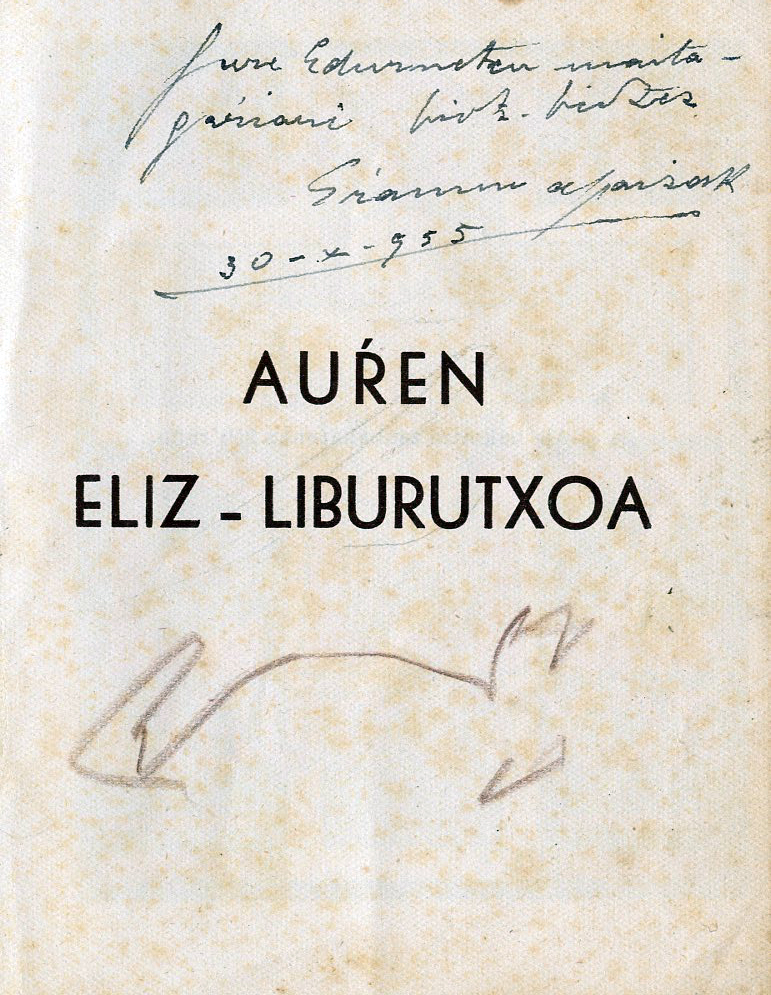 Gure Edurnetxu maita-
gaŕiari biotz-biotzez
Eŕamun apaizak
30-X-955
AUŔEN
ELIZ-LIBURUTXOA